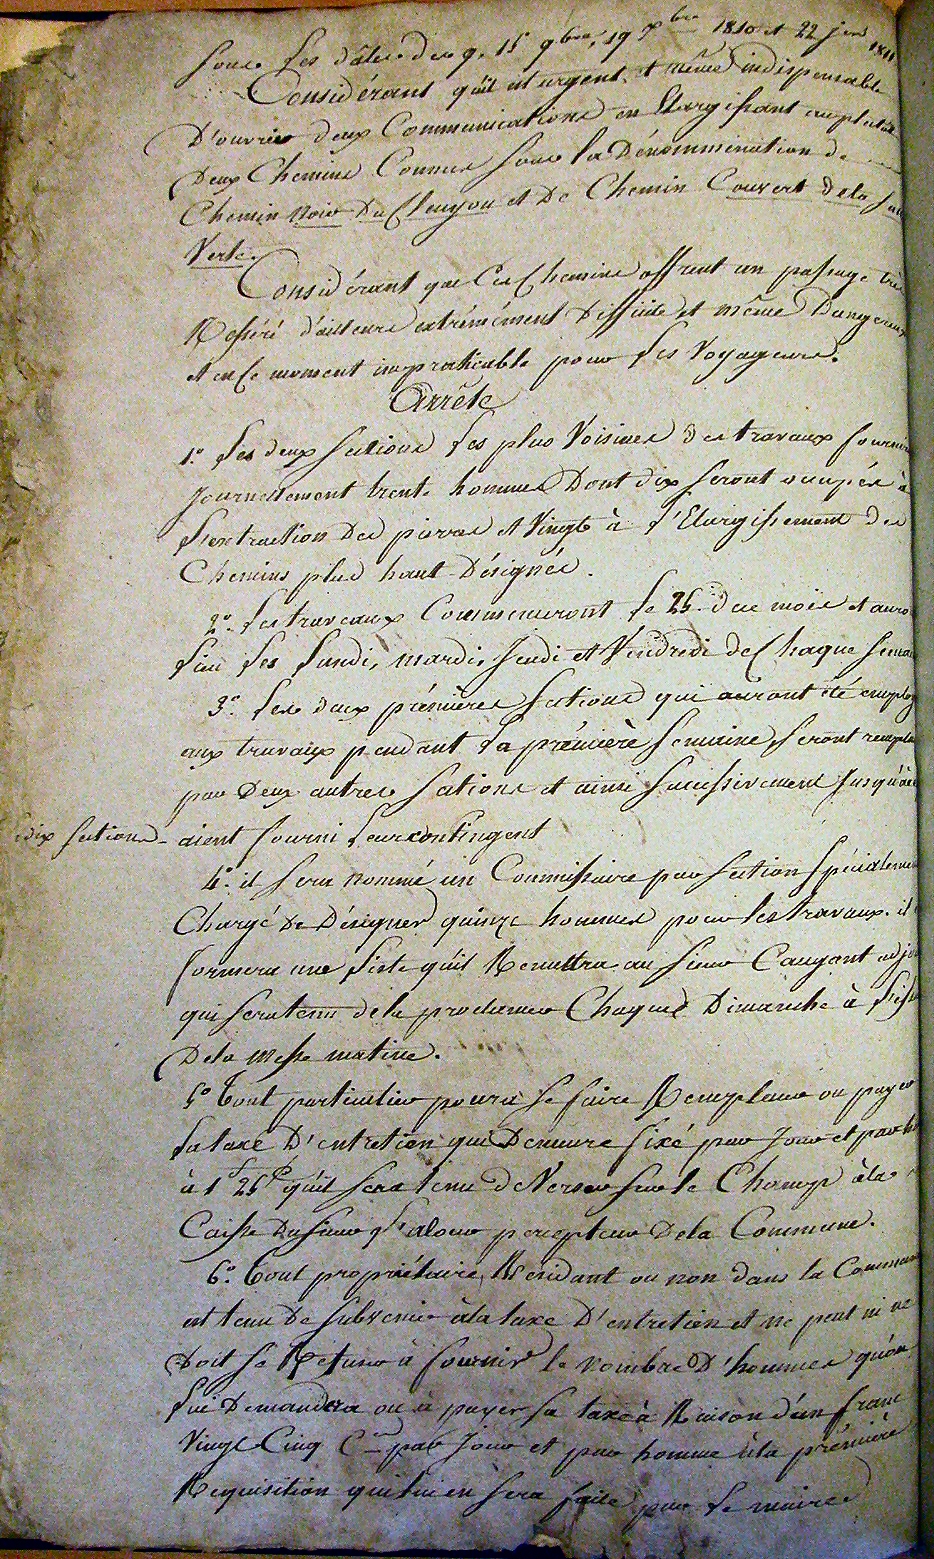 sous les dâtes des 9, 15 9bre, 19 Xbre 1810 et 22 janv 1811
Considérant qu'il est urgent et même indispensable
D'ouvrir deux Communications en Elargissant
Deux Chemins Connus sous la Dénommination de
Chemin noir Du Cleuyou et De Chemin Couvert de la
Verte.
Considérant que Ces Chemins offrent un passage très
Resseré d'ailleurs extrêmément Difficile et même Dangereux
et en Ce moment impraticable pour les Voyageurs.
Arrête
1.° Les deux sections les plus Voisines des travaux fourniro
Journellement trente hommes Dont dix seront occupés à
l'extraction Des pierres et Vingts à l'Elargissement des
Chemins plus haut Désignés.
2.° Les travaux Commenceront le 25 du mois et auro
lieu les lundi, mardi, Jeudi et Vendredi de Chaque semai
3.° Les deux prémières sections qui auront été employ
aux travaux pendant la prémière semaine, seront rempla
par Deux autres sections et ainsi successivement Jusqu'à ce
dix sections - aient fourni leur contingent
4.° il sera nommé un Commissaire par section spécialeme
Chargé de Désigner quinze hommes pour les travaux. il
formera une liste qu'il Remettra au sieur Caugant adjoi
qui sera tenu de la proclamer Chaque Dimanche à l'iss
De la Messe matine.
5.° Tout particulier poura se faire Remplacer ou payer
la taxe D'entretien qui Demeure fixé par Jour et par ho
à 1f 25c qu'il sera tenu de Verser sur le Champ à la
Caisse Du sieur perçepteur De la Commune.
6.° Tout propriétaire, Résidant ou non dans la Commune
est tenu De subvenir à la taxe D'entretien et ne peut ni ne
Doit se Refuser à fournir le nombre D'hommes qu'on
lui Demandera ou à payer sa taxe à Raison d'un franc
Vingt Cinq Cmes par Jour et par homme à la prémière
Requisition qui lui en sera faite par le maire